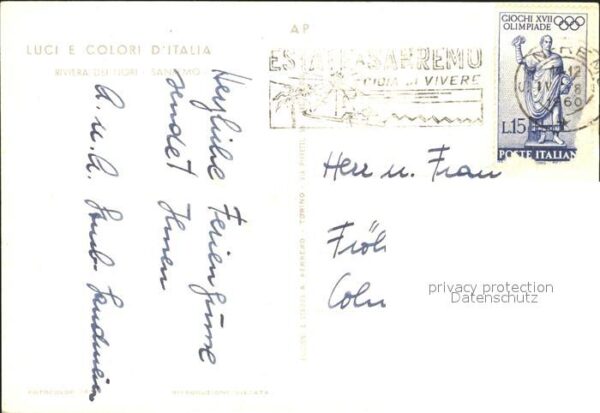 AP
LUCI E COLORI D'ITALIA
RIVIERA DEI FIORI - SANREMO
ESTATE A SANREMO
GIOIA DI VIVERE
12
8
1960
GIOCHI XVII
OLIMPIADE
L.15
POSTE ITALIANE
Herzliche Feriengrüsse
sendet Ihnen
A. u. A.
Herr u. Frau
Fröh
Coln
privacy protection
Datenschutz
RIPRODUZIONE VIETATA